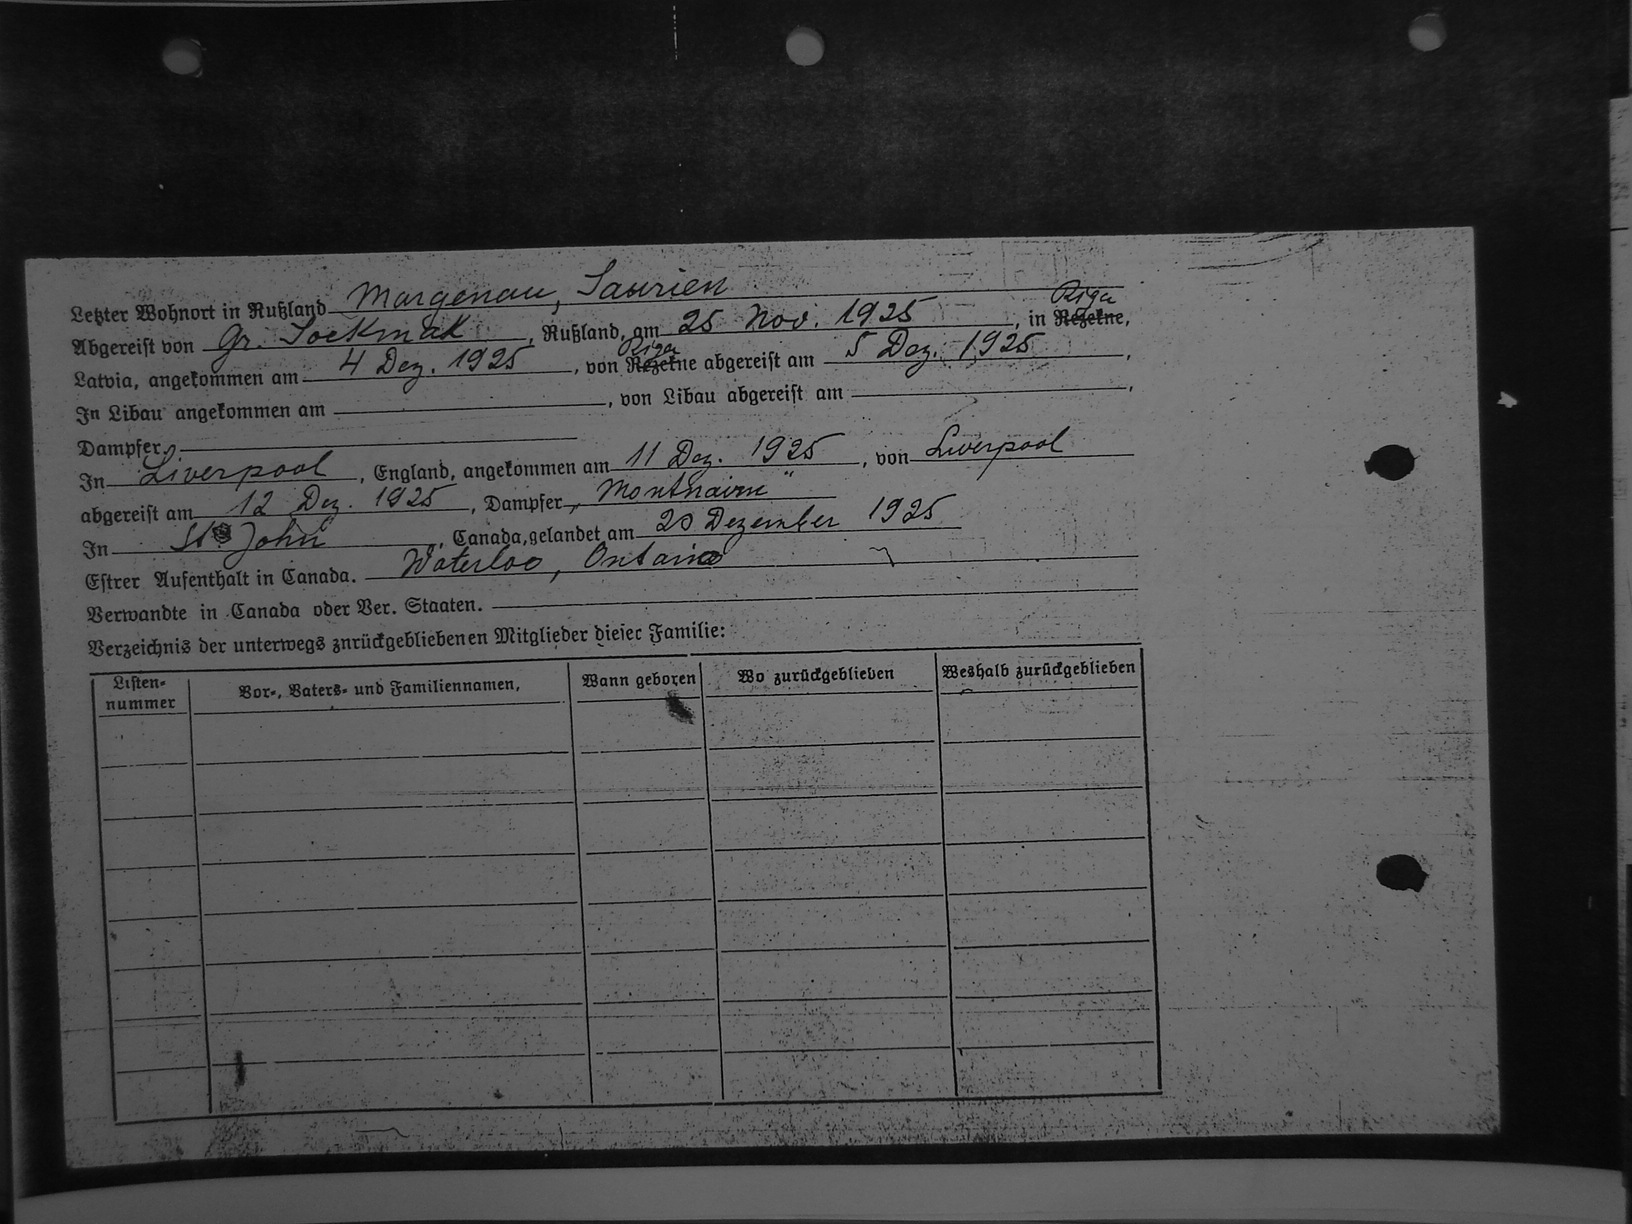 Letzter Wohnort in Rußland Margenau, Taurien
Riga
Abgereist von Gr. Tockmak, Rußland, am 25 Nov. 1925, in Rezekne,
Riga
Latvia, angekommen am 4 Dez. 1925, von Rezekne abgereist am 5 Dez. 1925,
In Libau angekommen am , von Libau abgereist am ,
Dampfer,
In Liverpool, England, angekommen am 11 Dez. 1925, von Liverpool
abgereist am 12 Dez. 1925, Dampfer „Montnairn"
In St John, Canada, gelandet am 20 Dezember 1925
Estrer Aufenthalt in Canada. Waterloo, Ontario
Verwandte in Canada oder Ver. Staaten.
Verzeichnis der unterwegs znrückgebliebenen Mitglieder diejec Familie:
Listen-
nummer
Vor-, Vaters- und Familiennamen,
Wann geboren
Wo zurückgeblieben
Weshalb zurückgeblieben